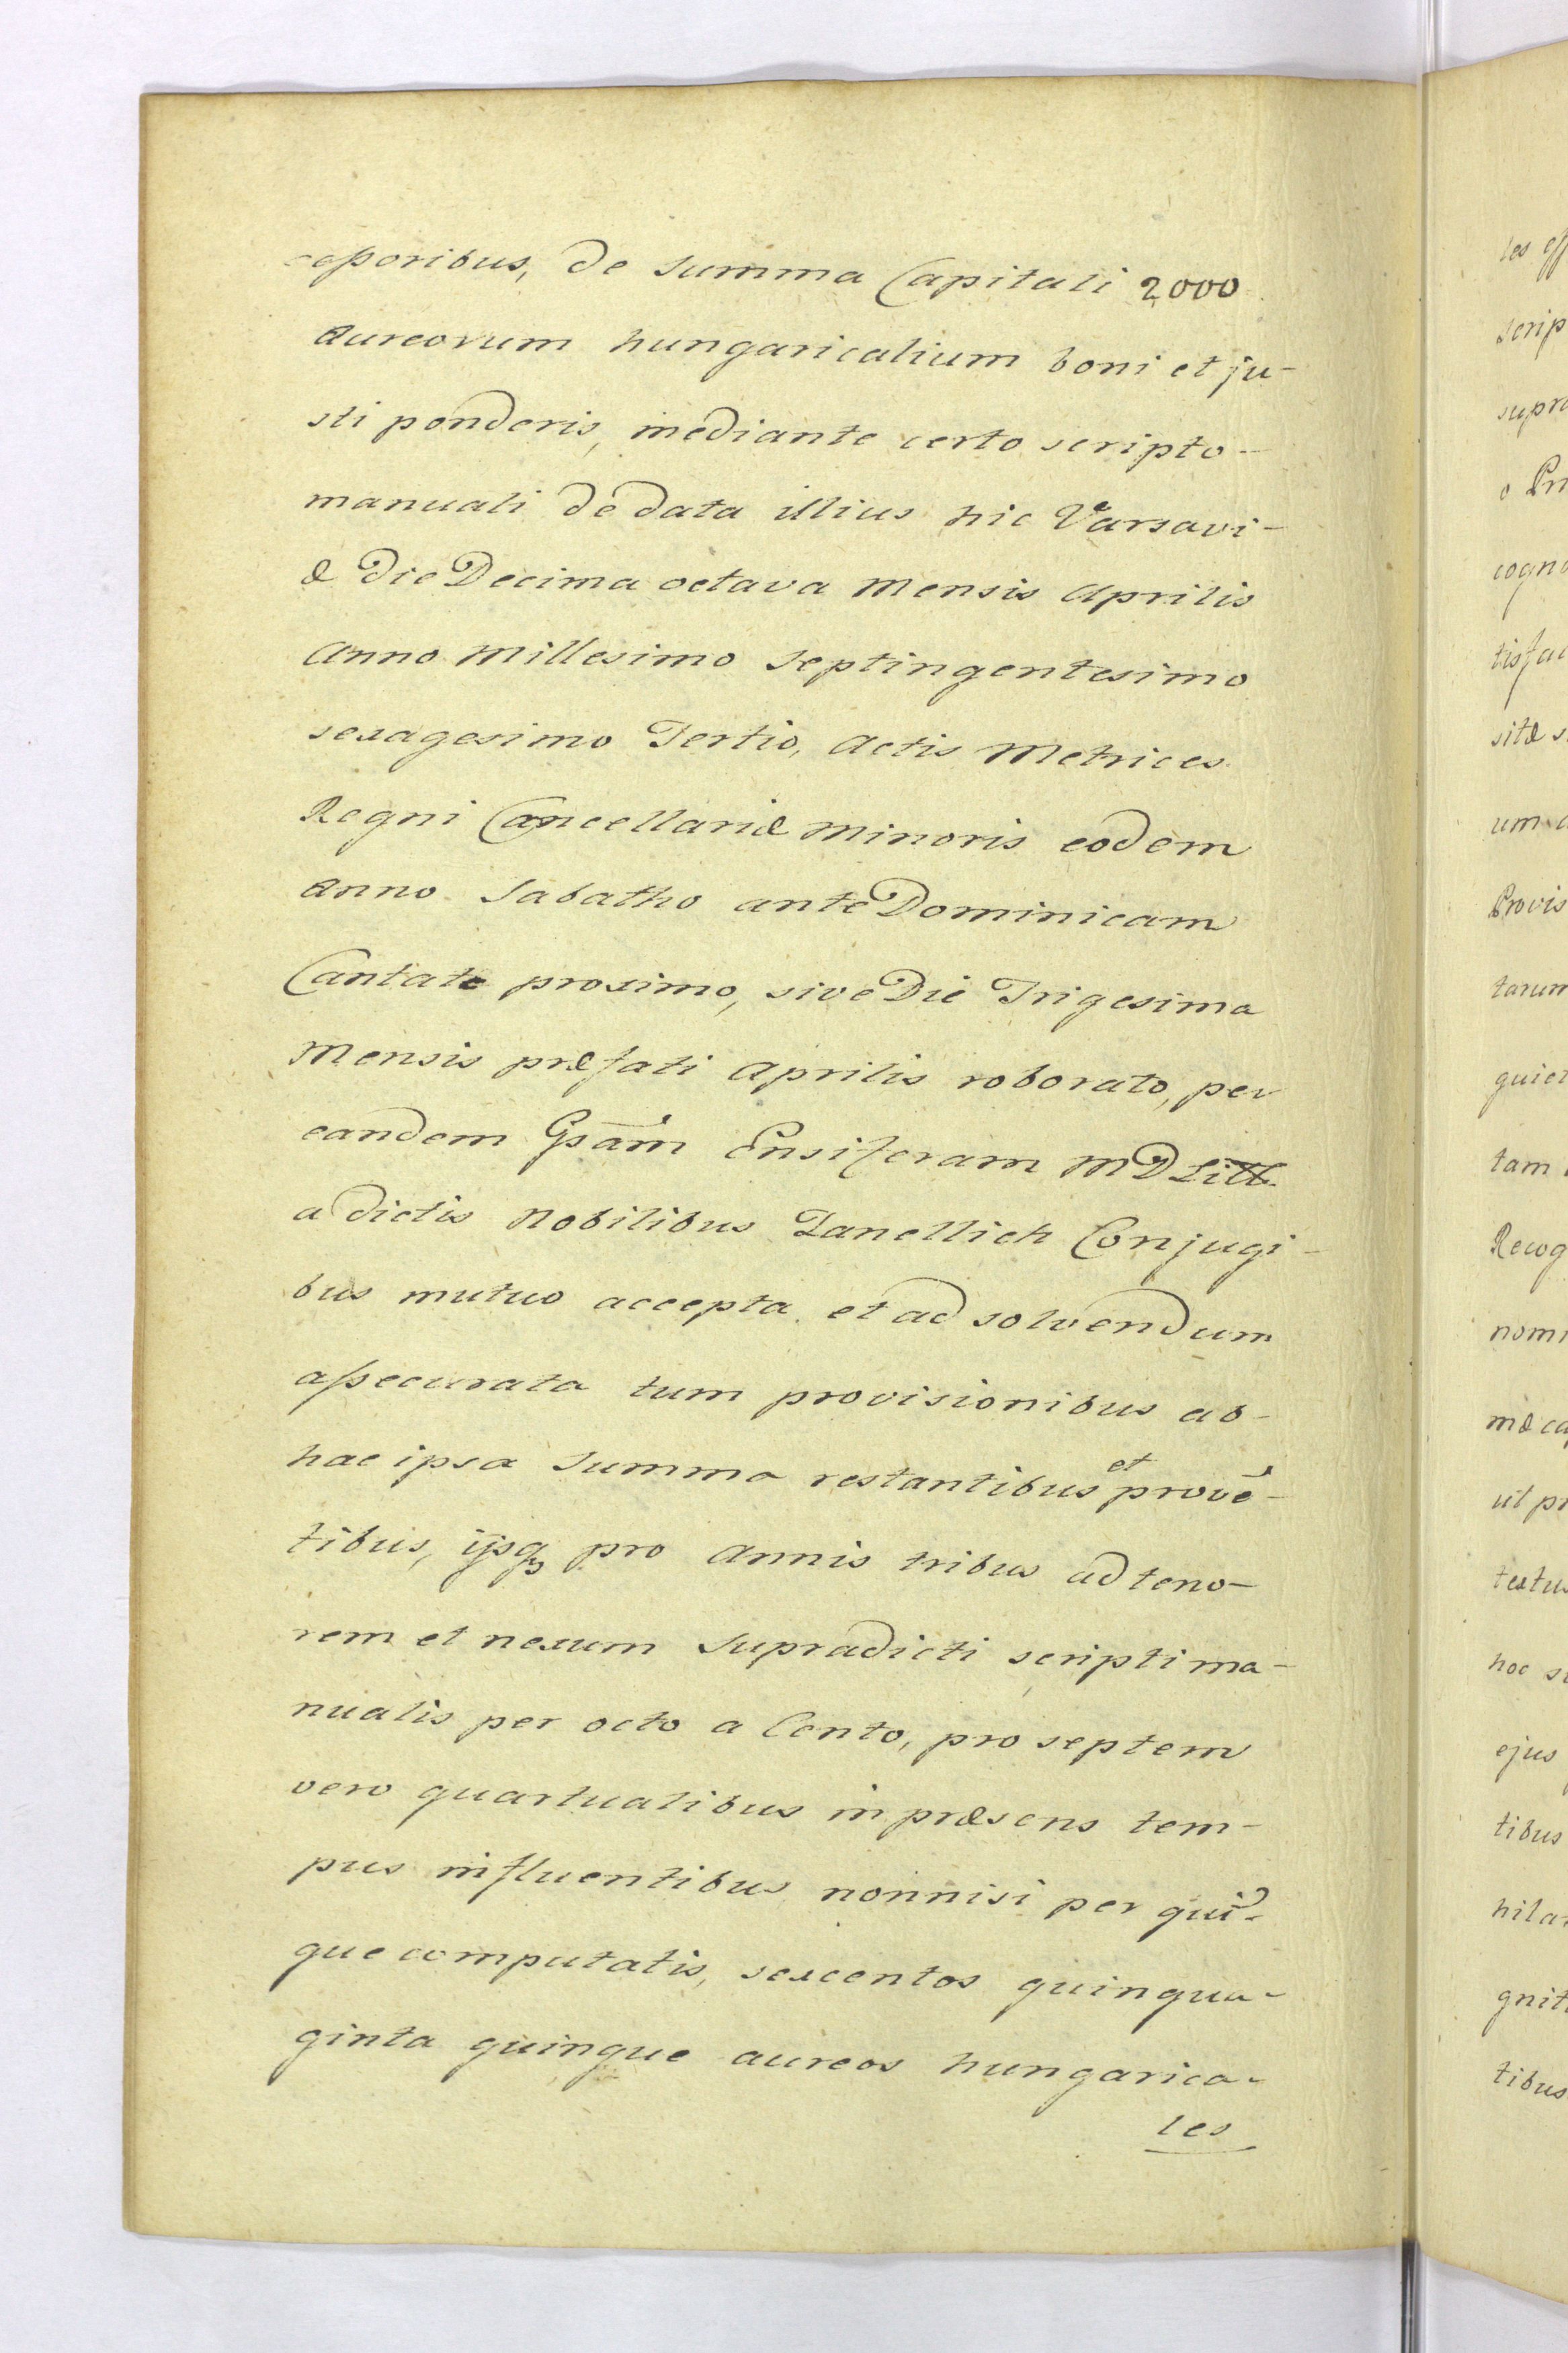 ceſsoribus, de summa Capitali 2000
Aureorum hungaricalium boni et ju-
sti ponderis, mediante certo scripto-
manuali de data illius hic Varsavi-
æ Die Decima octava Mensis Aprilis
Anno Millesimo Septingentesimo
sexagesimo Tertio, Actis Metrices
Regni Cancellariæ Minoris eodem
Anno Sabatho ante Dominicam
Cantate proximo, sive Die Trigesima
Mensis præfati Aprilis roborato, per
eandem Gsam Ensiferam MD Litt.
a dictis Nobilibus Zanellich Conjugi-
bus mutuo accepta et ad solvendum
aſsecurata tum provisionibus ab-
hac ipsa Summa restantibus et prove-
tibus, ijsq pro Annis tribus ad teno-
rem et nexum Supradicti scripti ma-
nualis per octo a Cento, pro septem
vero quartualibus in præsens tem-
pus influentibus nonnisi per quī-
que computatis, sexcentos quinqua-
ginta quinque aureos hungarica-
les
les eff
scrip
supra
cogno
tisfac
sitæ s
um
Provis
tarum
quiet
tam
Recog
nomi
mæ ca
ut pr
textus
hoc s
ejus
tibus
hila
gnit
tibus